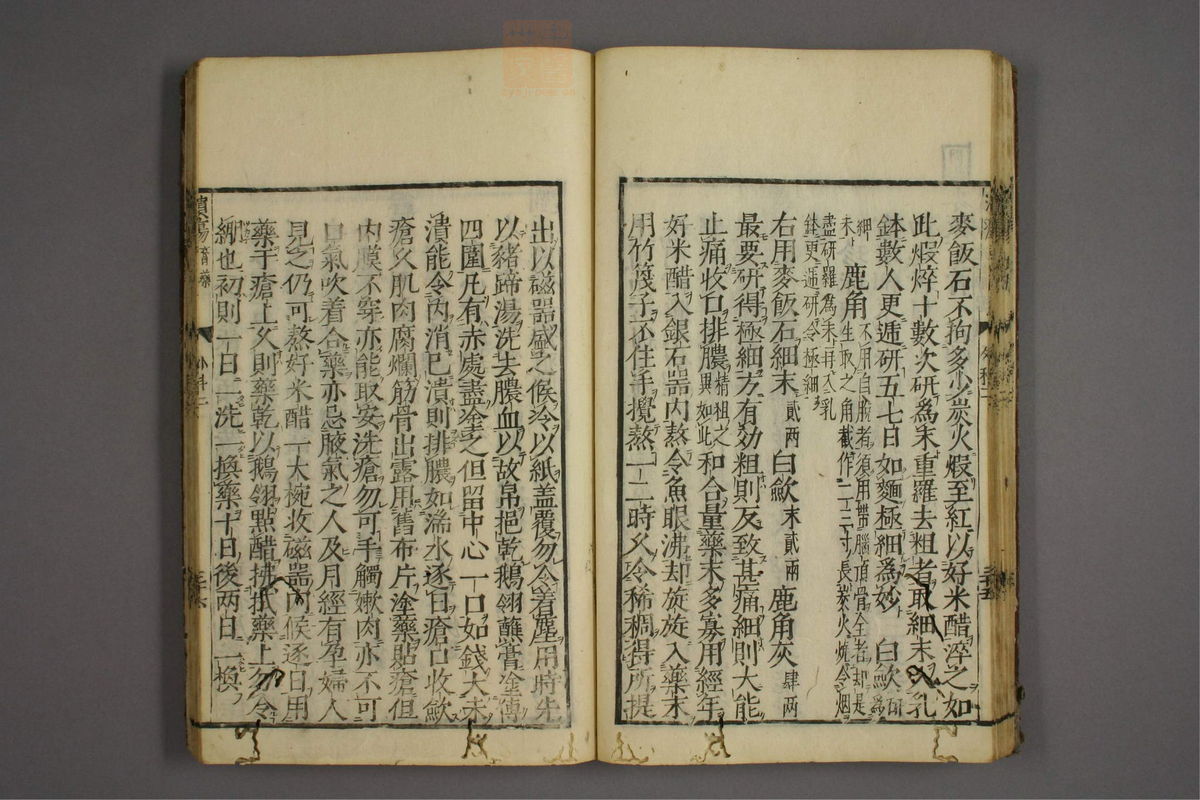 麥飯石不拘多少炭火煅至紅以好米醋淬之如
此煅焠十數次研爲末重羅去粗者取細末入乳
鉢數人更遞研五七日如麵極細爲妙 白歛
鹿角不用自脫者須用帶腦頂骨全者却是
生取之角截作二三寸長炭火燒令烟
盡研羅爲末再入乳
鉢更遞研令極細
右用麥飯石細末貳兩白歛末貳兩鹿角灰肆兩
最要研得極細方有効粗則反致甚痛細則大能
止痛收口排膿精粗之異如此和合量藥末多寡用經年
好米醋入銀石器內熬令魚眼沸却旋旋入藥末
用竹篾子不住手攪熬一二時久令稀稠得所提
出以磁器盛之候冷以紙盖覆勿令着塵用時先
以豬蹄湯洗去膿血以故帛挹乾鵝翎蘸膏塗傅
四圍凡有赤處盡塗之但留中心一口如錢大未
潰能令內消已潰則排膿如湍水逐日瘡口收歛
瘡久肌肉腐爛筋骨出露用舊布片塗藥貼瘡但
內膜不穿亦能取安洗瘡勿可手觸嫩肉亦不可
口氣吹着合藥亦忌腋氣之人及月經有孕婦人
見之仍可熬好米醋一大椀收磁器內候逐日用
藥于瘡上久則藥乾以鵝翎點醋拂拭藥上勿令
綳也初則一日一洗一換藥十日後兩日一換
外科二